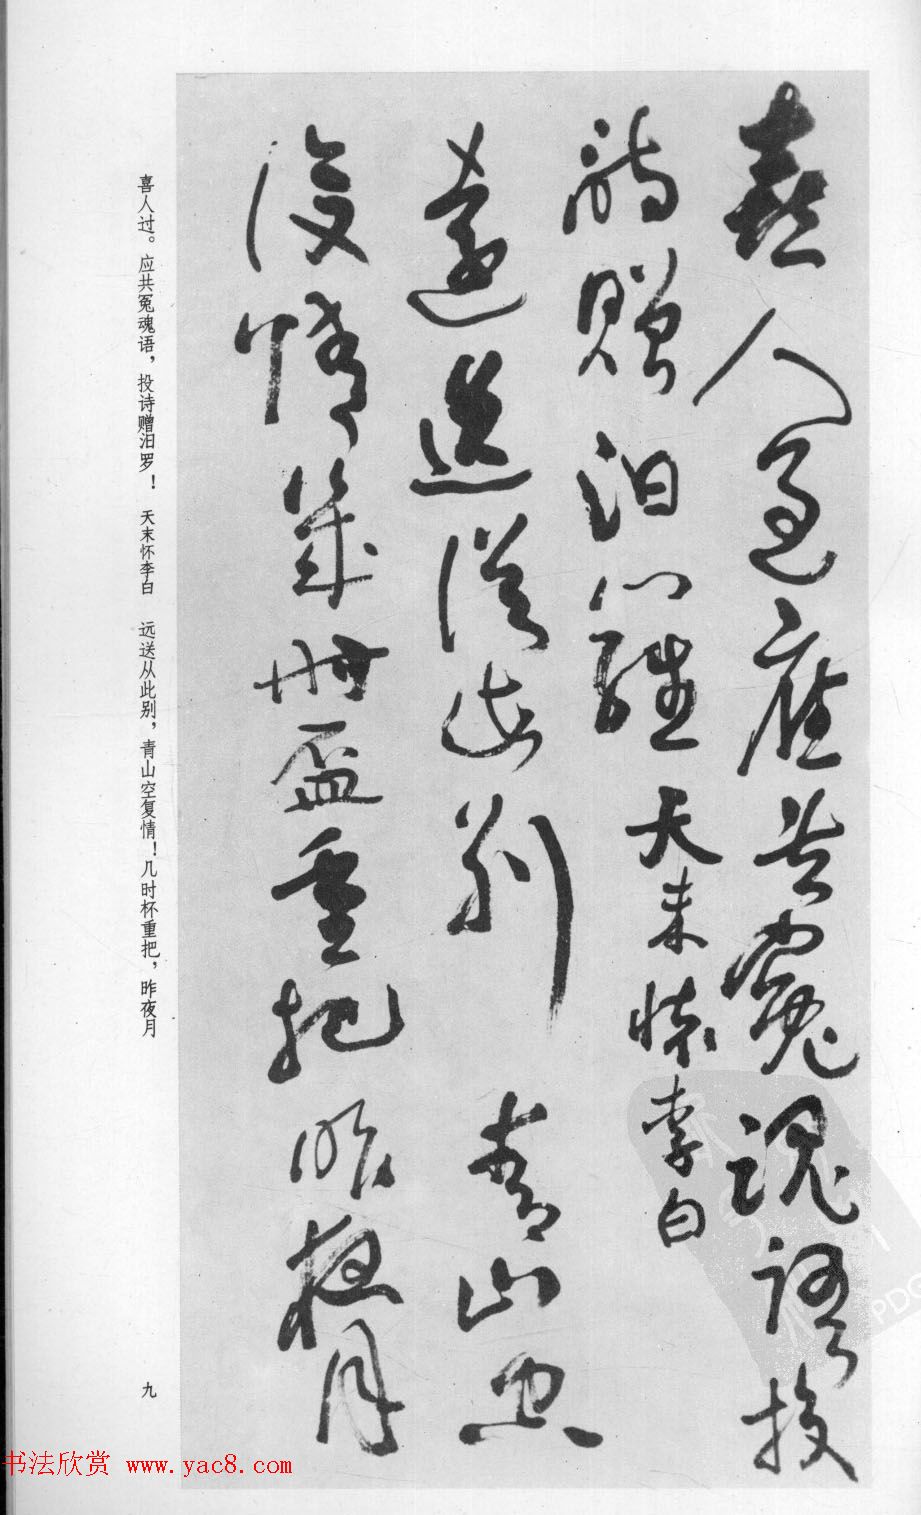 喜人過應共冤魂語投
詩贈汨羅 天末懷李白
遠送從此別青山空
復情幾時盃重把昨夜月
喜人过。应共冤魂语，投诗赠汨罗！ 天末怀李白 远送从此别，青山空复情！几时杯重把，昨夜月
九
书法欣赏 www.yac8.com